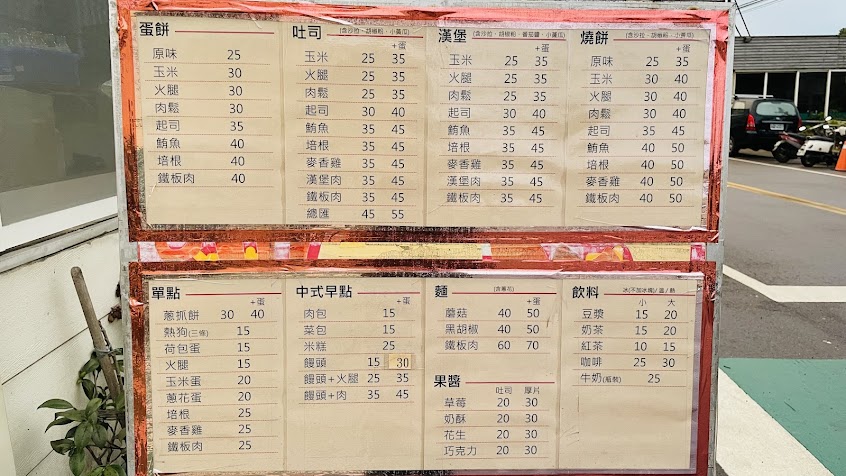 蛋餅
原味 25
玉米 30
火腿 30
肉鬆 30
起司 35
鮪魚 40
培根 40
鐵板肉 40
吐司 (含沙拉、胡椒粉、小黃瓜)
+蛋
玉米 25 35
火腿 25 35
肉鬆 25 35
起司 30 40
鮪魚 35 45
培根 35 45
麥香雞 35 45
漢堡肉 35 45
鐵板肉 35 45
總匯 45 55
漢堡 (含沙拉、胡椒粉、番茄醬、小黃瓜)
+蛋
玉米 25 35
火腿 25 35
肉鬆 25 35
起司 30 40
鮪魚 35 45
培根 35 45
麥香雞 35 45
漢堡肉 35 45
鐵板肉 35 45
燒餅 (含沙拉、胡椒粉、小黃瓜)
+蛋
原味 25 35
玉米 30 40
火腿 30 40
肉鬆 30 40
起司 35 45
鮪魚 40 50
培根 40 50
麥香雞 40 50
鐵板肉 40 50
單點
+蛋
蔥抓餅 30 40
熱狗(三條) 15
荷包蛋 15
火腿 15
玉米蛋 20
蔥花蛋 20
培根 25
麥香雞 25
鐵板肉 25
中式早點
+蛋
肉包 15
菜包 15
米糕 25
饅頭 15 30
饅頭+火腿 25 35
饅頭+肉 35 45
麵
+蛋
蘑菇 40 50
黑胡椒 40 50
鐵板肉 60 70
果醬
吐司 厚片
草莓 20 30
奶酥 20 30
花生 20 30
巧克力 20 30
飲料 冰(不加冰塊)/溫/熱
小 大
豆漿 15 20
奶茶 15 20
紅茶 10 15
咖啡 25 30
牛奶(瓶裝) 25